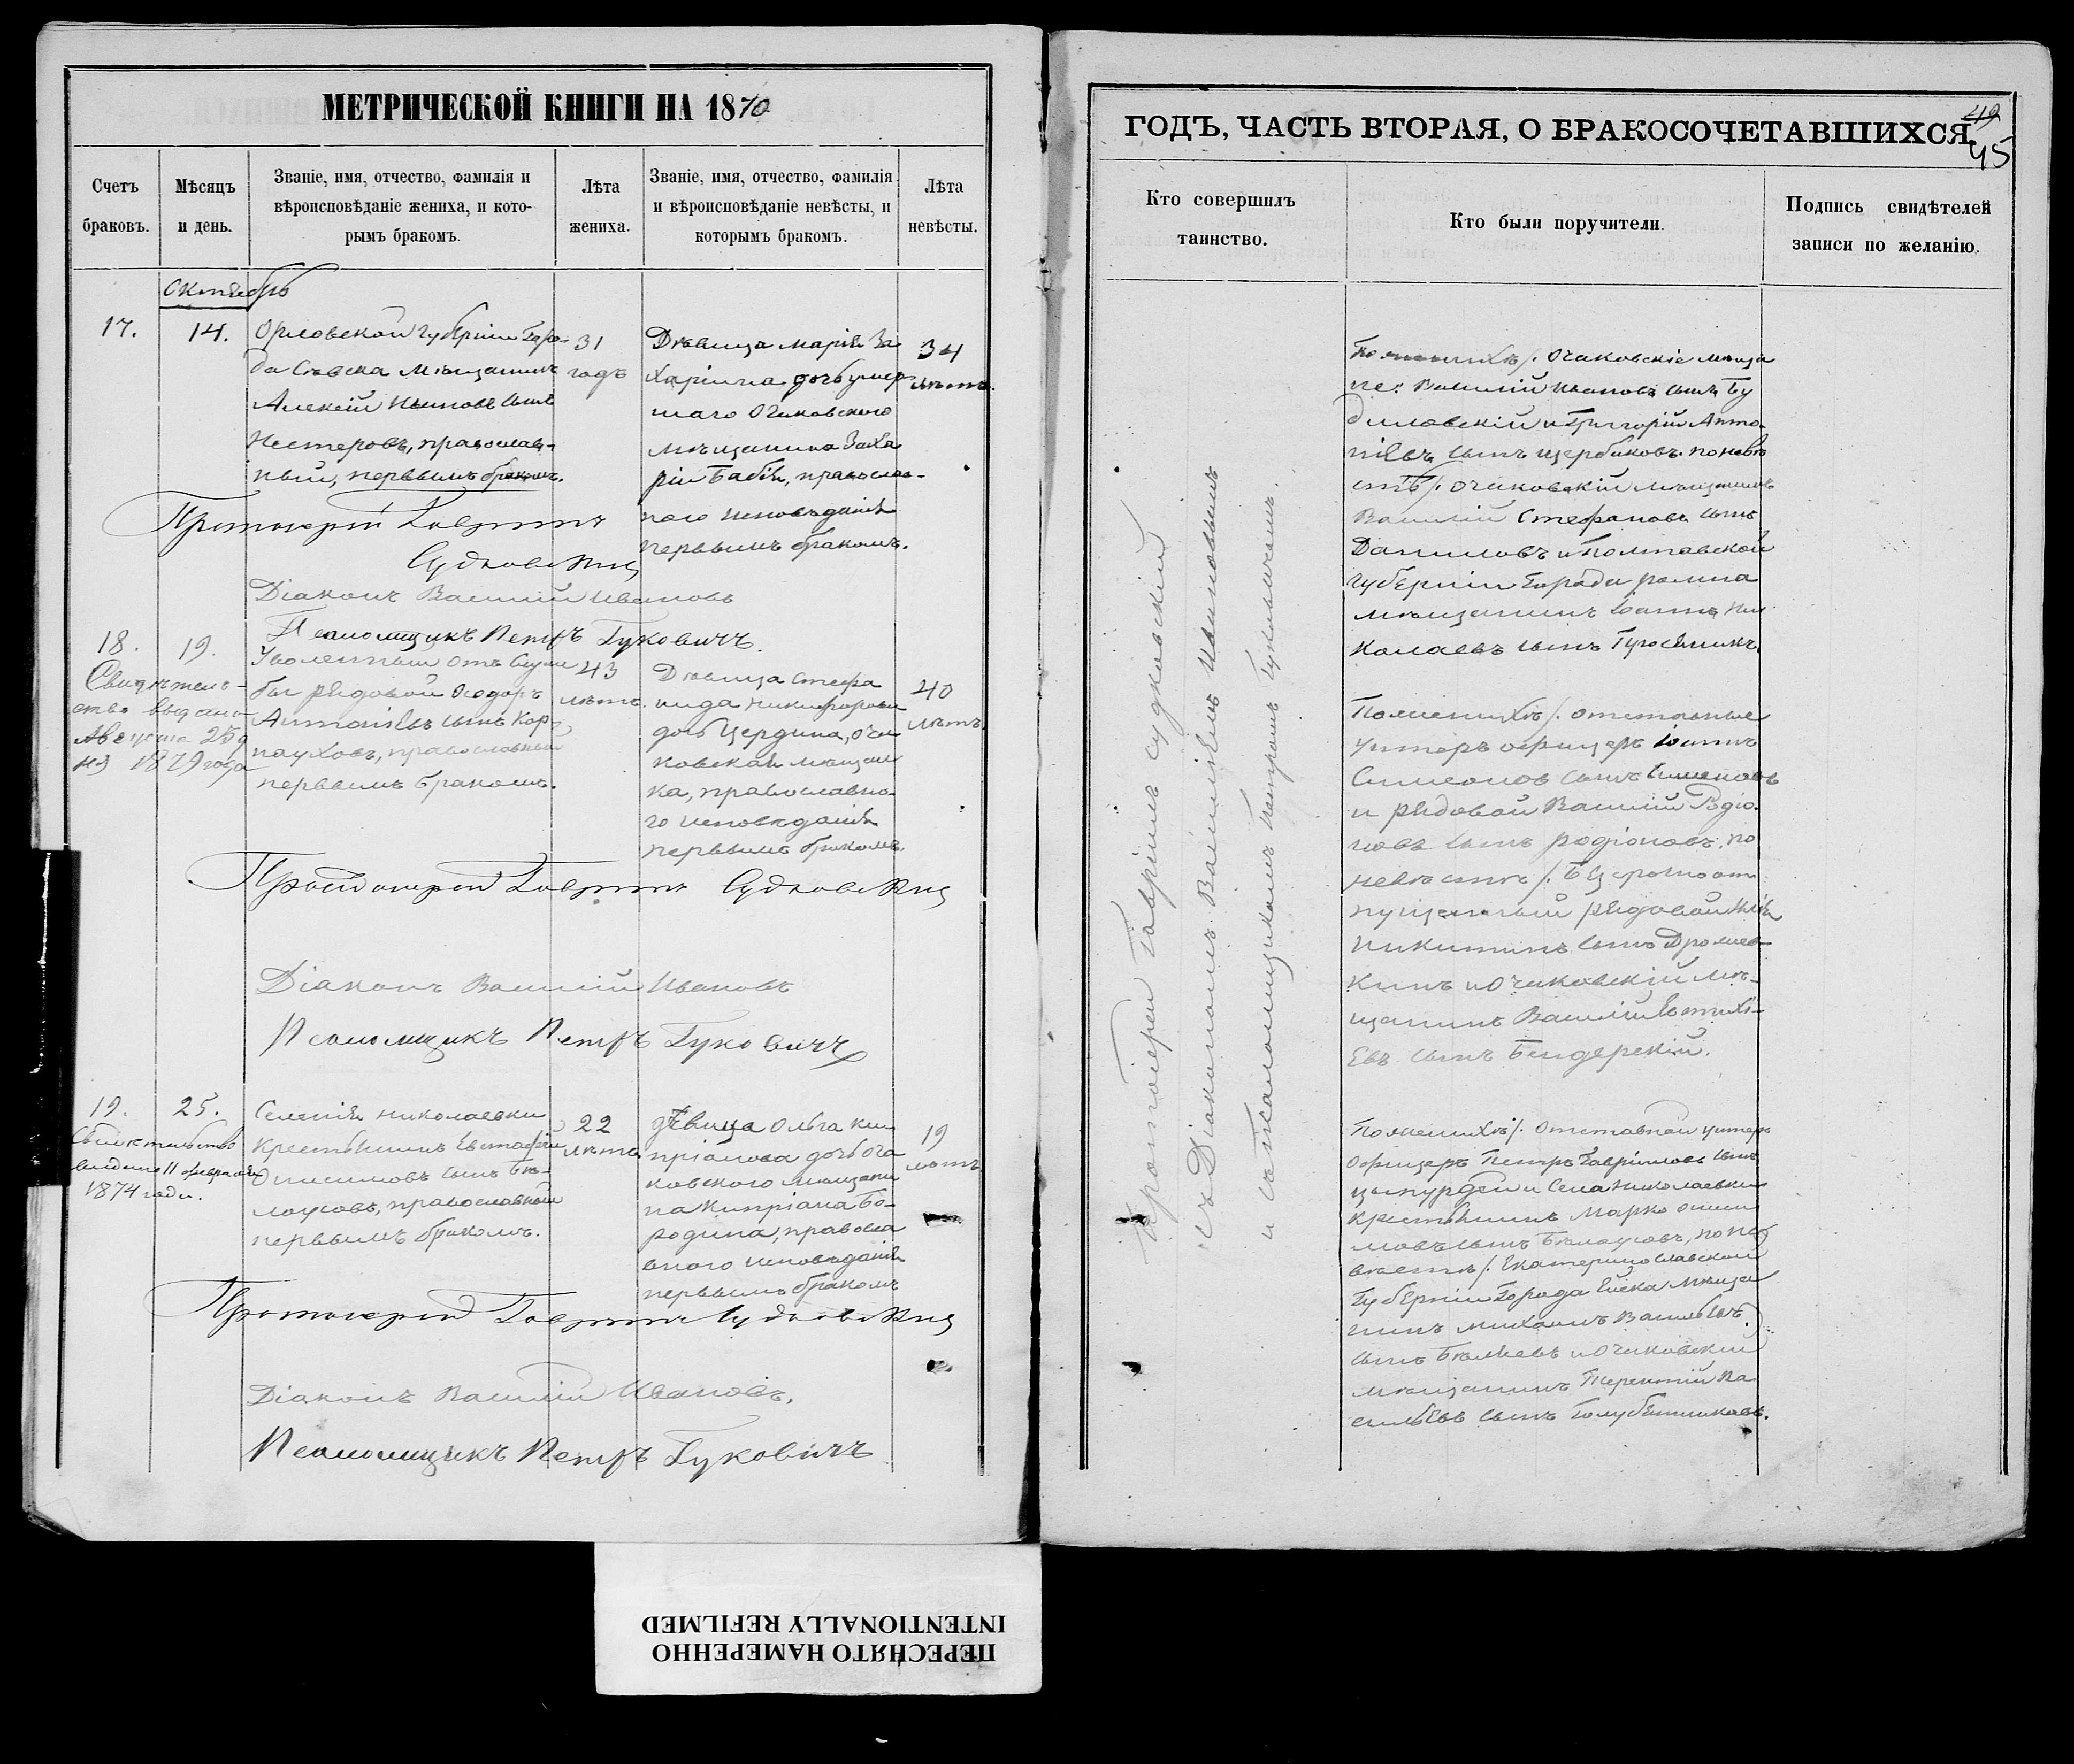 МЕТРИЧЕСКОЙ КНИГИ НА 1870
Счетъ
браковъ.
Мѣсяцъ
и день.
Званіе, имя, отчество, фамилія и
вѣроисповѣданіе жениха, и кото-
рымъ бракомъ.
Лѣта
жениха.
Званіе, имя, отчество, фамилія
и вѣроисповѣданіе невѣсты, и
которымъ бракомъ.
Лѣта
невѣсты.
Октябрь
17.
14.
Орловской губерніи Горо-
да Сѣвска мѣщанинъ
Алексій Ивановъ сынъ
Нестеровъ, православ-
ный, первымъ бракомъ.
31
годъ
Дѣвица Марія За
харіина дочь умер
шаго Очаковскаго
мѣщанина Заха
рія Бабія, православ-
наго исповѣданія
первымъ бракомъ.
34
лѣтъ.
Протоіерей Гавріилъ
Судковскій
Діаконъ Василій Ивановъ
Псаломщикъ Петръ Гуковичъ.
18.
19.
Свидѣтель-
ство выдано
Августа 25
1879 года
Уволенный отъ служ
бы рядовой Ѳеодоръ
Антоніевъ сынъ Кор-
науховъ, православный
первымъ бракомъ.
43
лѣтъ.
Дѣвица Стефа
нида Никифорова
дочь Цердина, Оча
ковская мѣщан
ка, православна-
го исповѣданія
первымъ бракомъ.
40
лѣтъ.
Протоіерей Гавріилъ Судковскій
Діаконъ Василій Ивановъ
Псаломщикъ Петръ Гуковичъ
19.
25.
Свидѣтельство
выдано 11 февраля
1874 года.
Селенія Николаевки
крестьянинъ Евстафій
Онисимовъ сынъ Бѣ-
лоусовъ, православный
первымъ бракомъ.
22
лѣтъ
дѣвица Ольга Ки
пріанова дочь Оча
ковскаго мѣщани
на Кипріана Бо-
родина, правосла
внаго исповѣданія
первымъ бракомъ
19
лѣтъ
Протоіерей Гавріилъ Судковскій
Діаконъ Василій Ивановъ.
Псаломщикъ Петръ Гуковичъ
ГОДЪ, ЧАСТЬ ВТОРАЯ, О БРАКОСОЧЕТАВШИХСЯ.
49
45
Кто совершилъ
таинство.
Кто были поручители.
Подпись свидѣтелей
записи по желанію.
Протоіерей Гавріилъ Судковскій
съ Діакономъ Василіемъ Ивановымъ
и псаломщикомъ Петромъ Гуковичемъ.
По женихѣ/: Очаковскіе мѣща
не: Василій Ивановъ сынъ Бу
диловскій и Григорій Анто-
ніевъ сынъ Щербаковъ. по невѣ
стѣ/: Очаковскій мѣщанинъ
Василій Стефановъ сынъ
Даниловъ и Полтавской
губерніи города Ромна
мѣщанинъ Іоаннъ Ни
колаевъ сынъ
По женихѣ/: отставные
унтеръ офицеръ Іоаннъ
Симеоновъ сынъ Симеоновъ
и рядовой Василій Родіо-
новъ сынъ Родіоновъ. по
невѣстѣ/: безсрочно от
пущенный рядовой Илія
Никитинъ сынъ
и Очаковскій мѣ-
щанинъ Василій Евтихі-
евъ сынъ Бендерскій.
По женихѣ/: Отставной унтеръ
офицеръ Петръ Гавріиловъ сынъ
и села Николаевки
крестьянинъ Марко Ониси
мовъ сынъ Бѣлоусовъ, по не
вѣстѣ/: Екатеринославской
губерніи города Ейска мѣща
нинъ Михаилъ Васильевъ
сынъ Бѣляевъ и Очаковскій
мѣщанинъ Терентій Ва
сильевъ сынъ Голубятниковъ.
ПЕРЕСНЯТО НАМЕРЕННО
INTENTIONALLY REFILMED